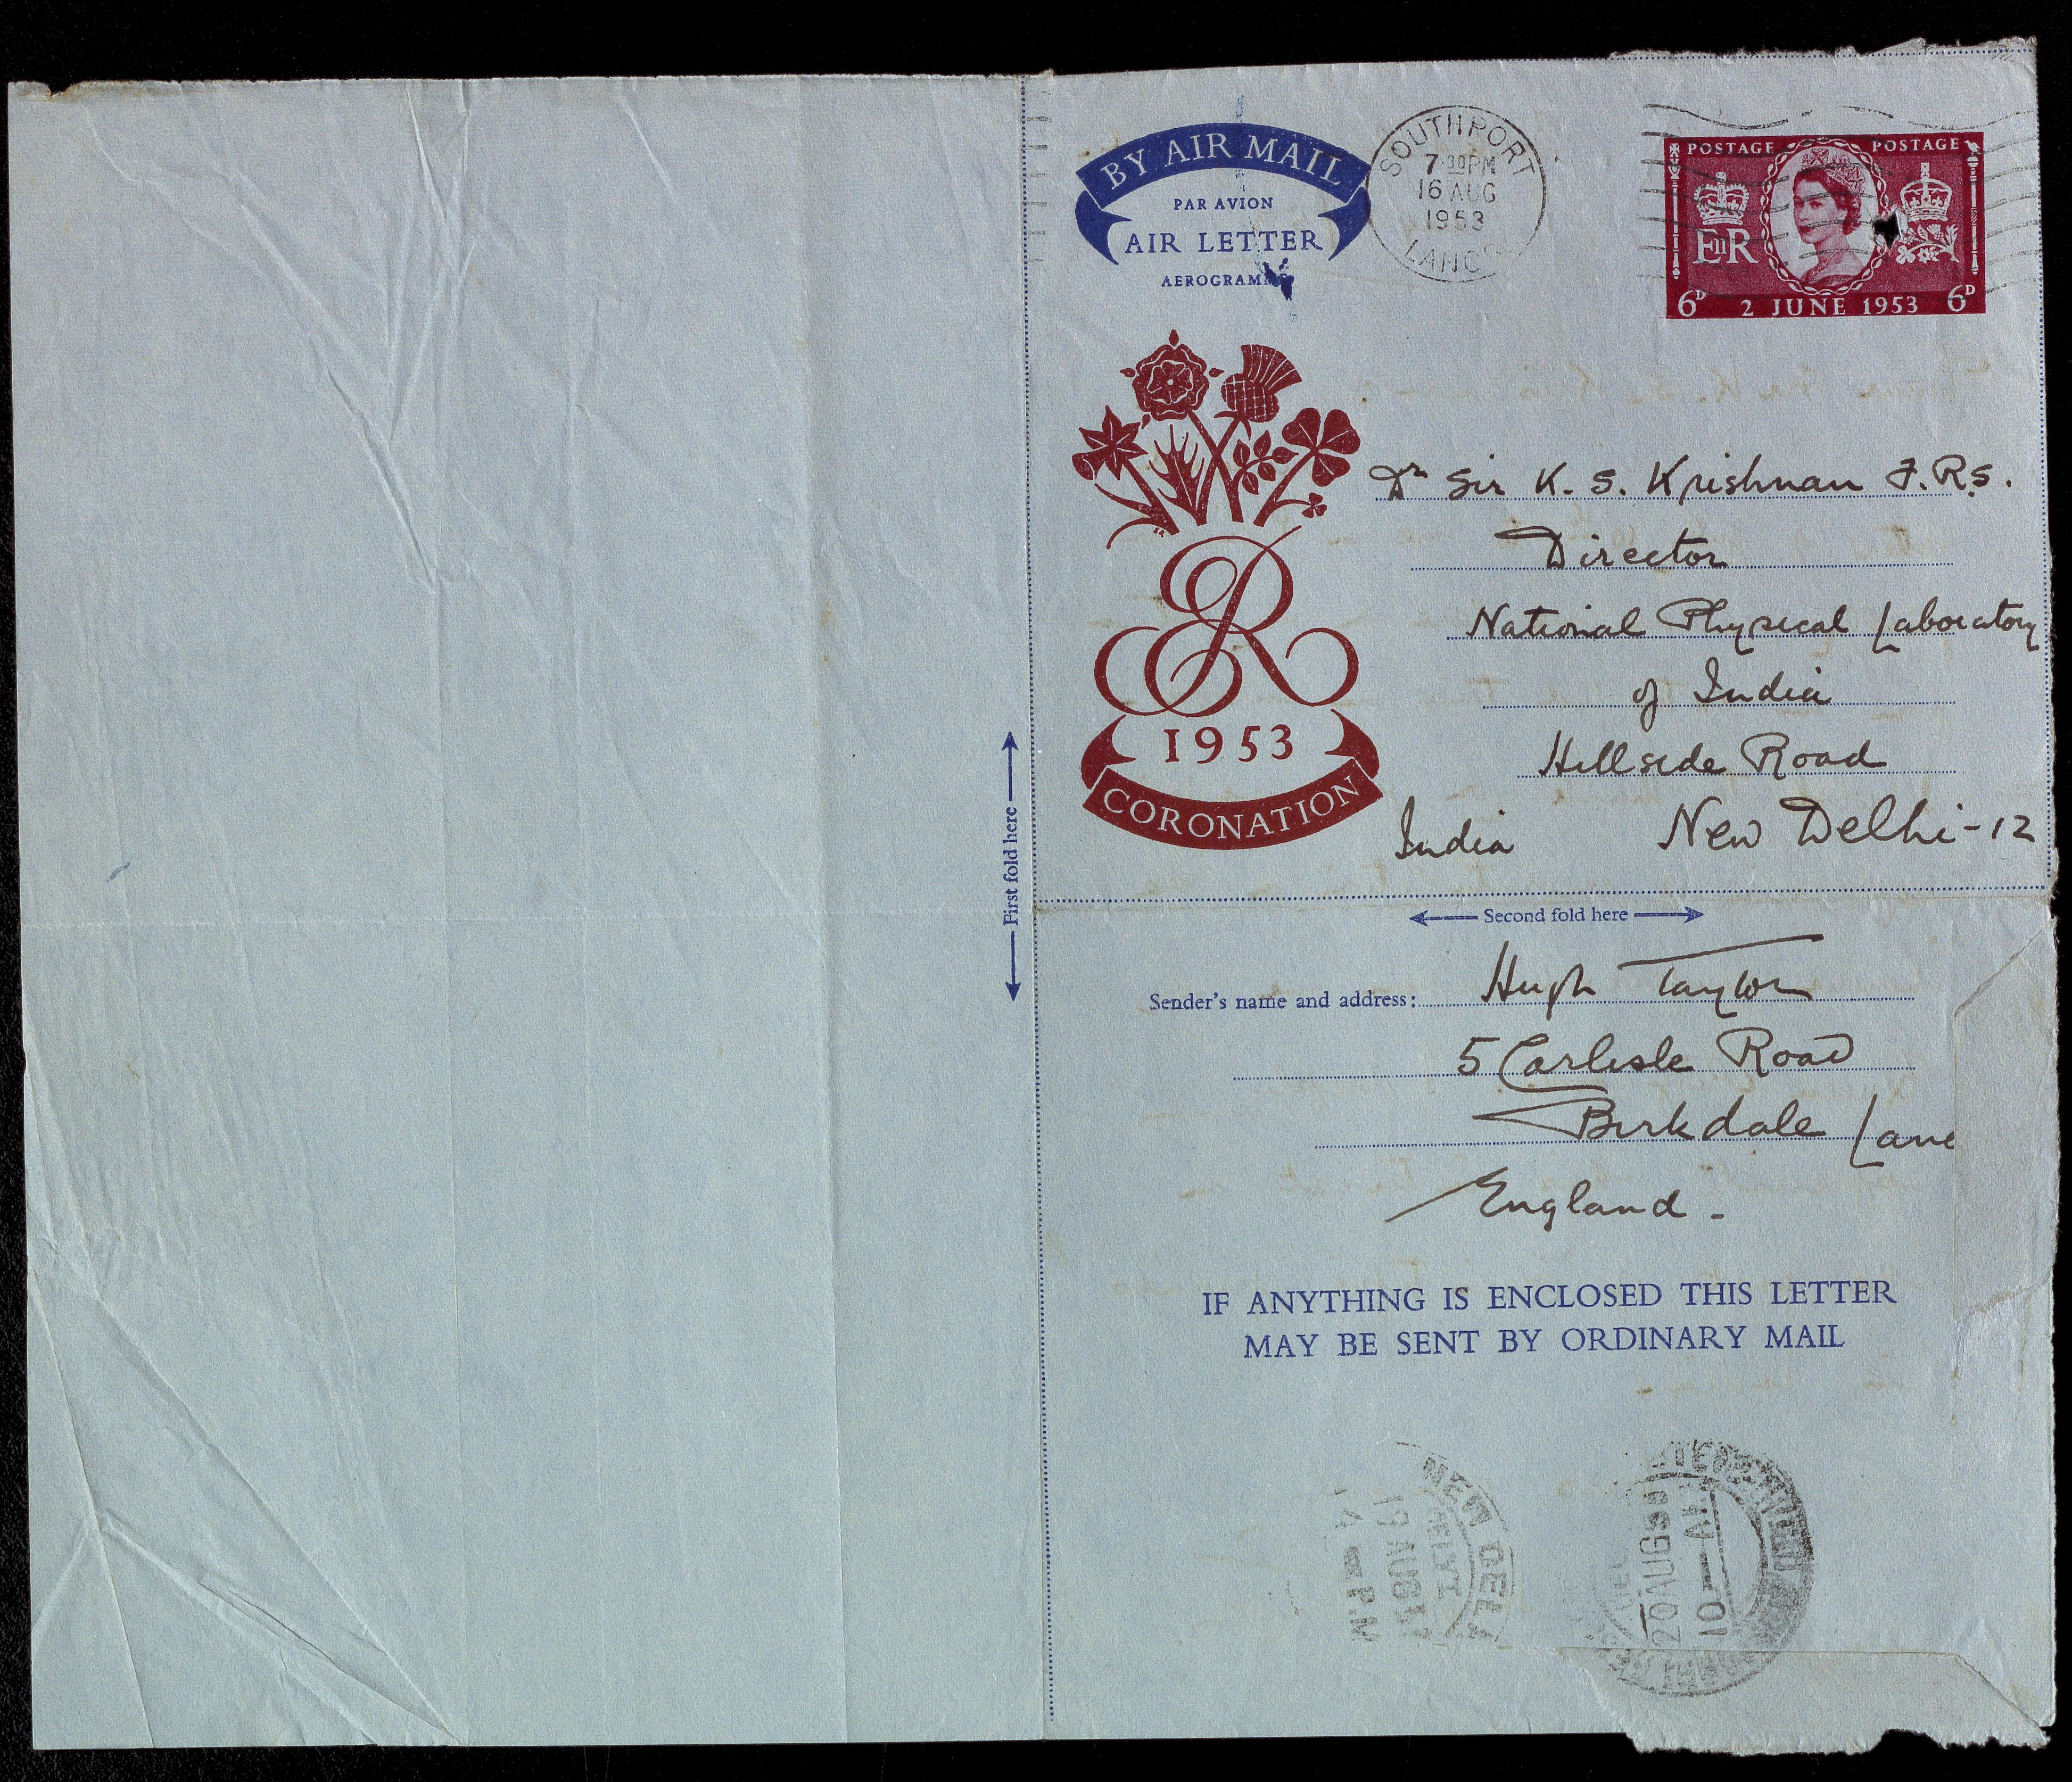 BY AIR MAIL
PAR AVION
AIR LETTER
AEROGRAMME
SOUTHPORT
7·30PM
16 AUG
1953
LANCS
POSTAGE POSTAGE
EIIR
6D 2 JUNE 1953 6D
ER
1953
CORONATION
Dr Sir K. S. Krishnan F.R.S.
Director
National Physical Laboratory
of India
Hillside Road
India New Delhi-12
First fold here
Second fold here
Sender's name and address: Hugh Taylor
5 Carlisle Road
Birkdale Lanc
England.
IF ANYTHING IS ENCLOSED THIS LETTER
MAY BE SENT BY ORDINARY MAIL
NEW DEL
19 AUG
20 AUG 53
10 - AM